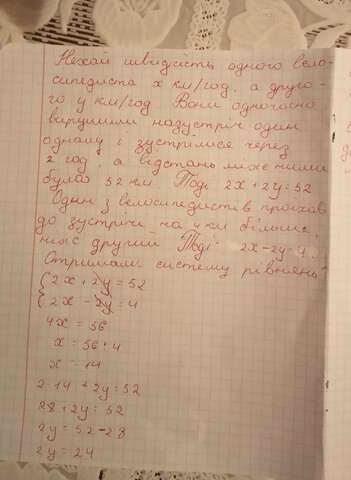 Нехай швидкість одного вело-
сипедиста x км/год, а друго-
го y км/год. Вони одночасно
вирушили назустріч один
одному і зустрілися через
2 год, а відстань між ними
була 52 км. Тоді 2x+2y=52
Один з велосипедистів проїхав
до зустрічі на 4 км більше,
ніж другий Тоді 2x-2y=4
Отримали систему рівнянь
2x+2y=52
2x-2y=4
4x=56
x=56:4
x=14
2·14+2y=52
28+2y=52
2y=52-28
2y=24